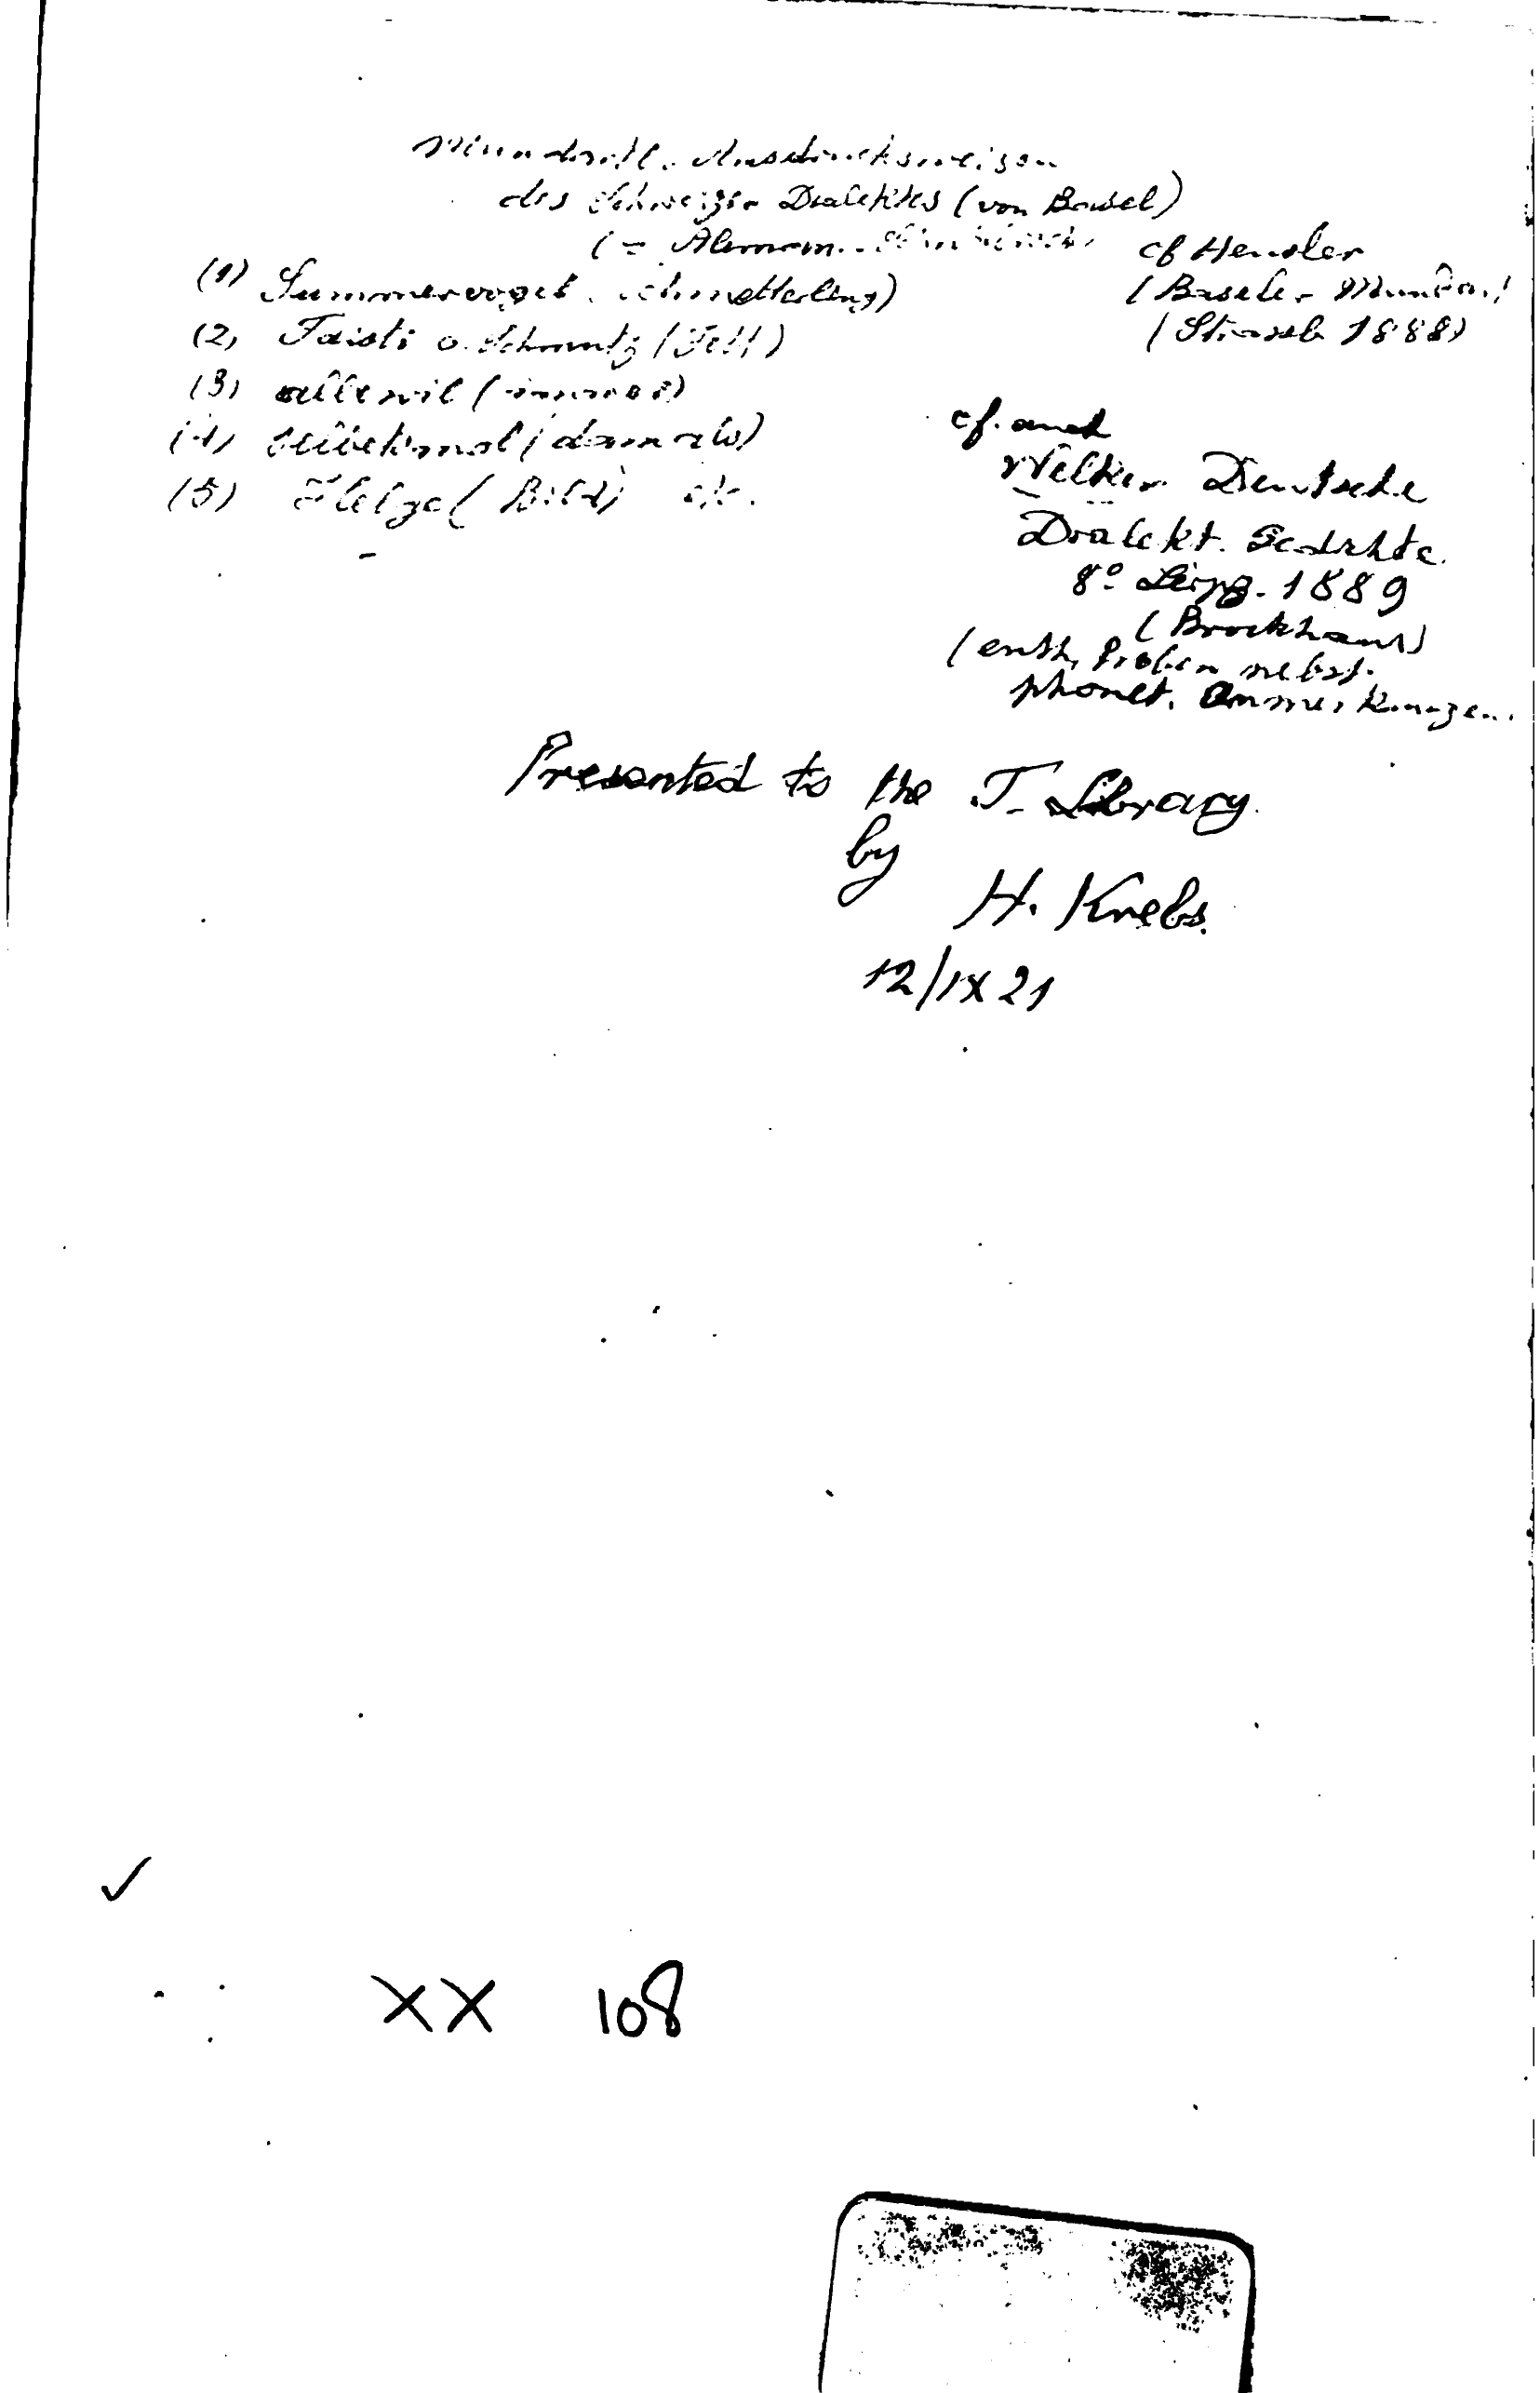 Mundartl. Ausdrucksweisen
des Schweizer Dialektes (von Basel)
(= Alemann.
(1) Summervogel (Schmetterling)
(2) Faisti o. Schmutz (Fett)
(3) allewil (immer)
(4) (damals)
(5) Helge (Bild) etc.
cf Heusler
(Baseler Mundart
(Strassb. 1888)
cf. auch
Welker Deutsche
Dialekt. Gedichte
8º Leipz. 1889
(Brockhaus)
(enth. Proben nebst
phonet. Anmerkungen.
Presented to the T. Library
by
H. Krebs.
12/IX 21
✓
XX 108